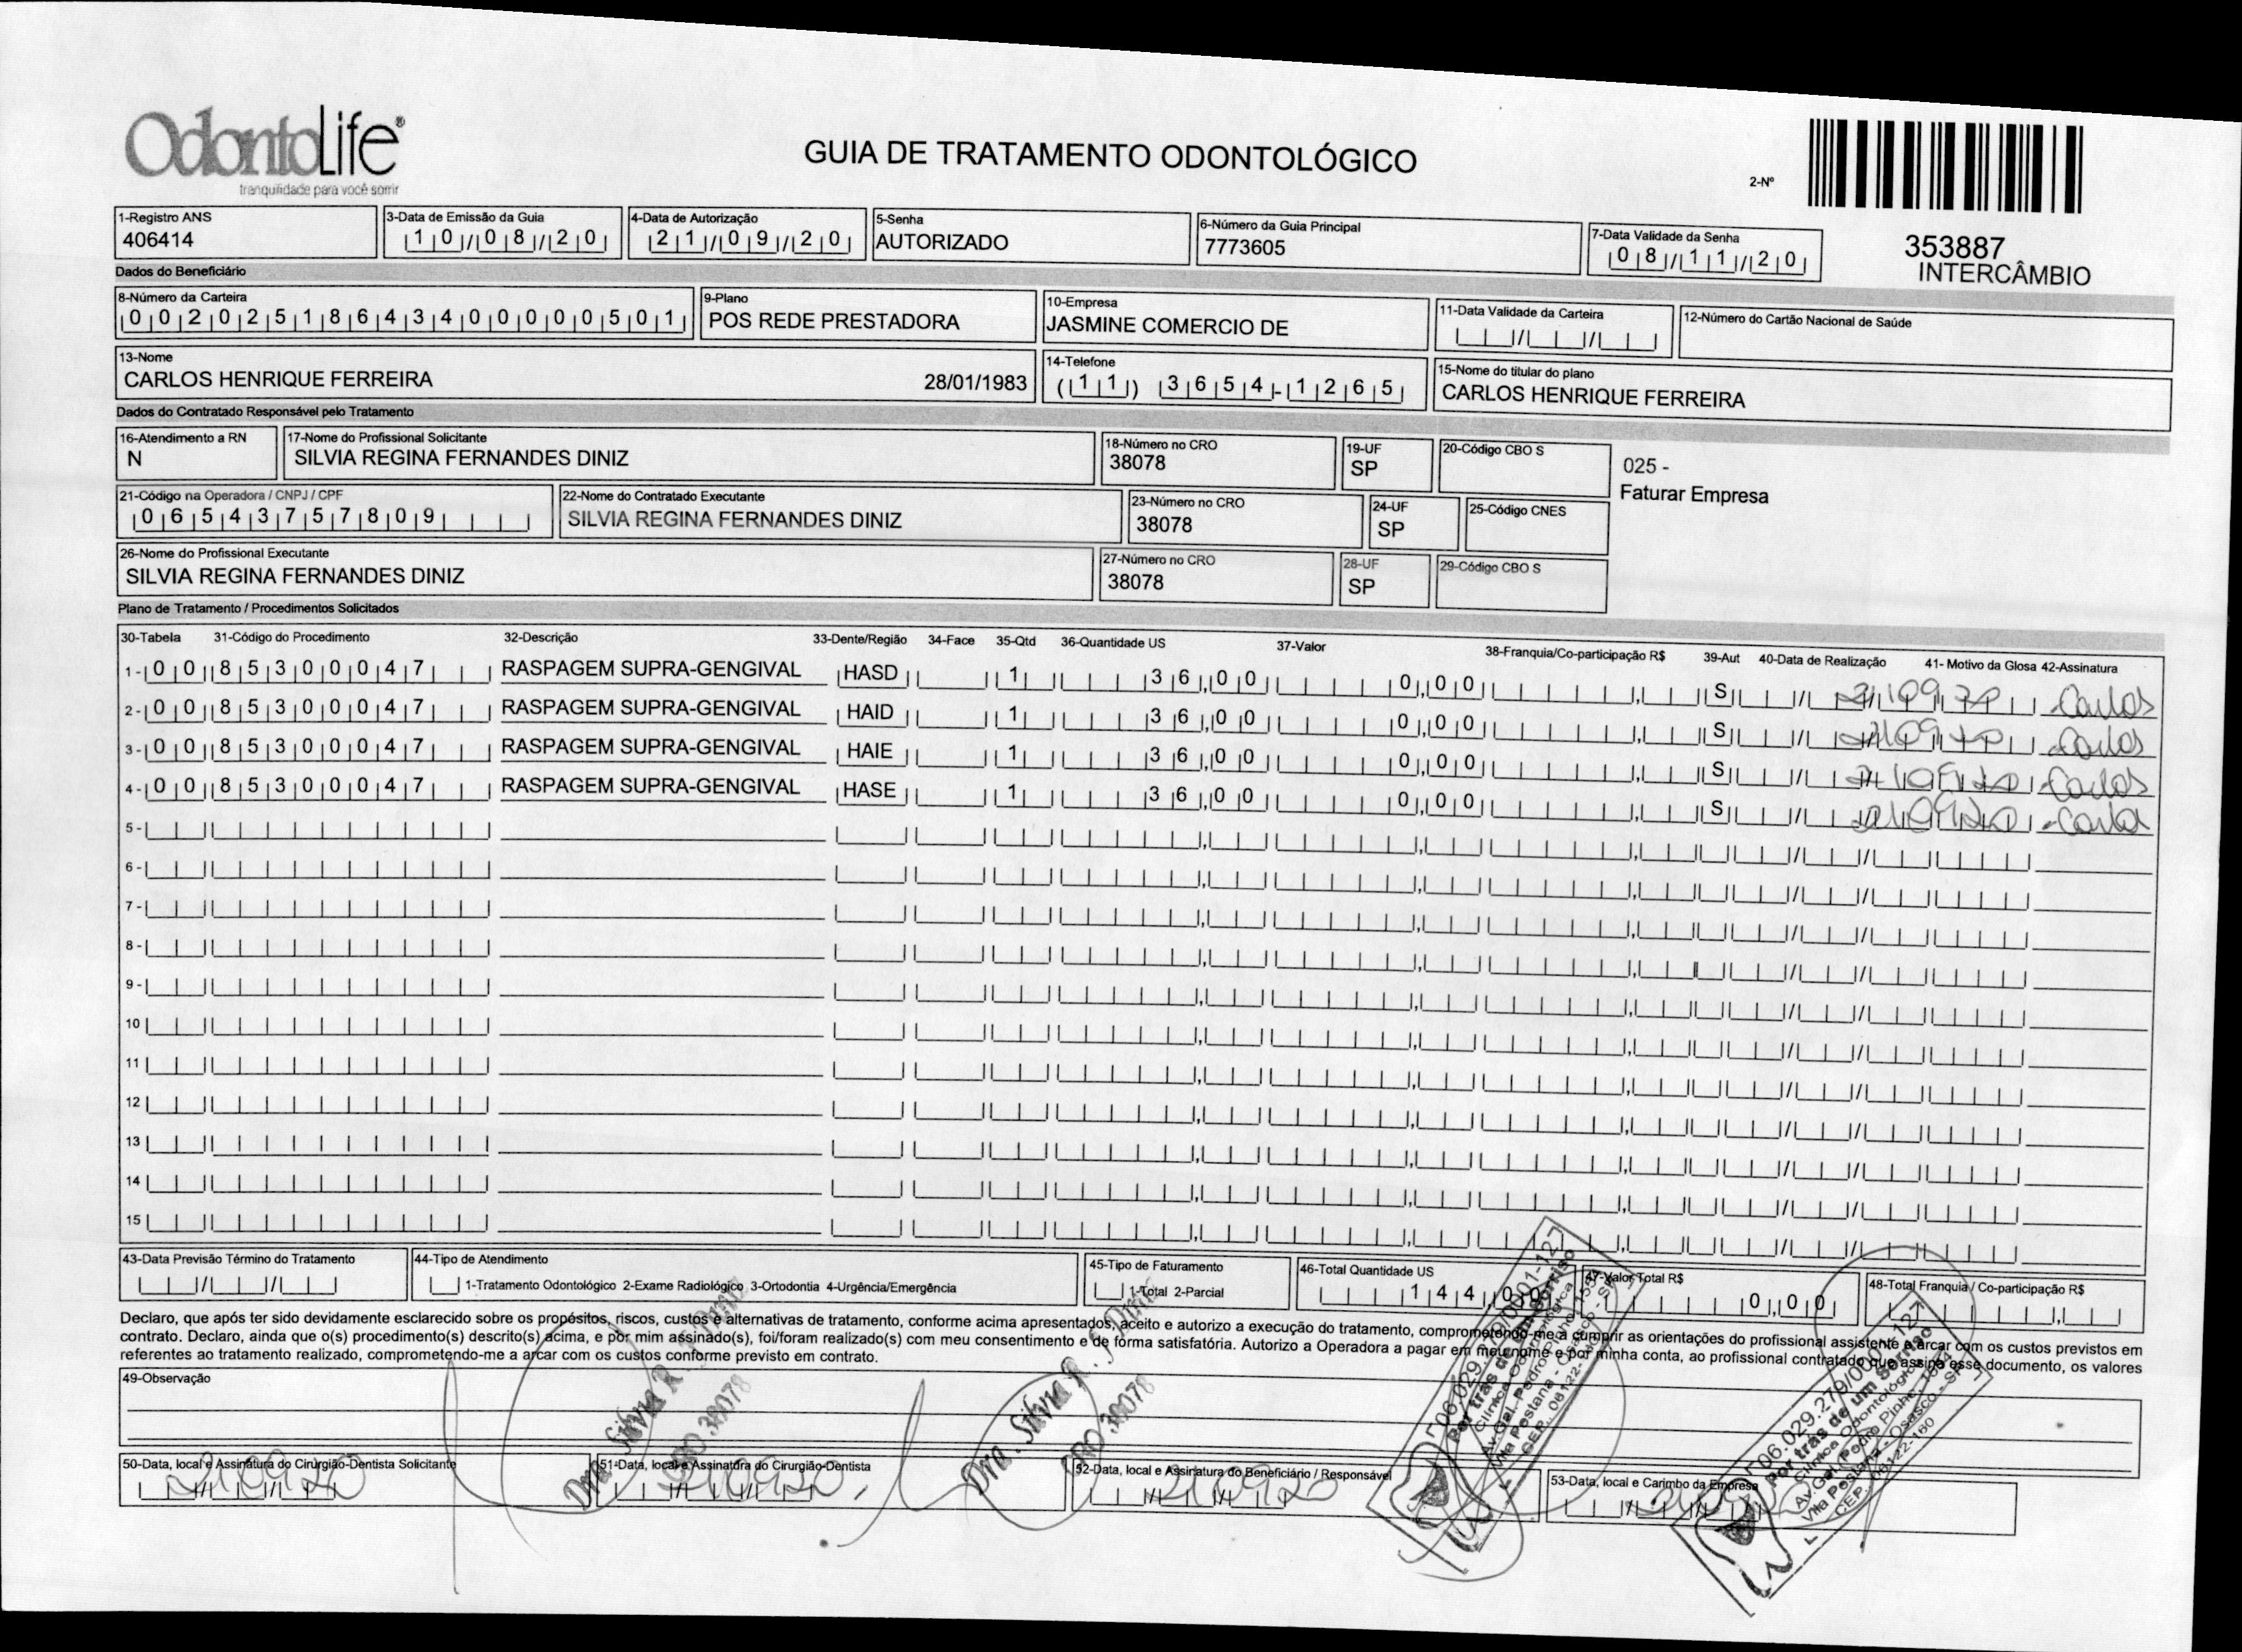 OdontoLife®
tranquilidade para você sorrir
GUIA DE TRATAMENTO ODONTOLÓGICO
2-Nº
353887
INTERCÂMBIO
1-Registro ANS
406414
3-Data de Emissão da Guia
10/08/20
4-Data de Autorização
21/09/20
5-Senha
AUTORIZADO
6-Número da Guia Principal
7773605
7-Data Validade da Senha
08/11/20
Dados do Beneficiário
8-Número da Carteira
002025186434000000501
9-Plano
POS REDE PRESTADORA
10-Empresa
JASMINE COMERCIO DE
11-Data Validade da Carteira
12-Número do Cartão Nacional de Saúde
13-Nome
CARLOS HENRIQUE FERREIRA 28/01/1983
14-Telefone
(11) 3654-1265
15-Nome do titular do plano
CARLOS HENRIQUE FERREIRA
Dados do Contratado Responsável pelo Tratamento
16-Atendimento a RN
N
17-Nome do Profissional Solicitante
SILVIA REGINA FERNANDES DINIZ
18-Número no CRO
38078
19-UF
SP
20-Código CBO S
025 -
Faturar Empresa
21-Código na Operadora / CNPJ / CPF
06543757809
22-Nome do Contratado Executante
SILVIA REGINA FERNANDES DINIZ
23-Número no CRO
38078
24-UF
SP
25-Código CNES
26-Nome do Profissional Executante
SILVIA REGINA FERNANDES DINIZ
27-Número no CRO
38078
28-UF
SP
29-Código CBO S
Plano de Tratamento / Procedimentos Solicitados
30-Tabela 31-Código do Procedimento 32-Descrição 33-Dente/Região 34-Face 35-Qtd 36-Quantidade US 37-Valor 38-Franquia/Co-participação R$ 39-Aut 40-Data de Realização 41- Motivo da Glosa 42-Assinatura
1- 00 85300047 RASPAGEM SUPRA-GENGIVAL HASD 1 36,00 0,00 S 21/09/20 Carlos
2- 00 85300047 RASPAGEM SUPRA-GENGIVAL HAID 1 36,00 0,00 S 21/09/20 Carlos
3- 00 85300047 RASPAGEM SUPRA-GENGIVAL HAIE 1 36,00 0,00 S 21/09/20 Carlos
4- 00 85300047 RASPAGEM SUPRA-GENGIVAL HASE 1 36,00 0,00 S 21/09/20 Carlos
5-
6-
7-
8-
9-
10
11
12
13
14
15
43-Data Previsão Término do Tratamento
44-Tipo de Atendimento
1-Tratamento Odontológico 2-Exame Radiológico 3-Ortodontia 4-Urgência/Emergência
45-Tipo de Faturamento
1-Total 2-Parcial
46-Total Quantidade US
144,00
47-Valor Total R$
0,00
48-Total Franquia / Co-participação R$
Declaro, que após ter sido devidamente esclarecido sobre os propósitos, riscos, custos e alternativas de tratamento, conforme acima apresentados, aceito e autorizo a execução do tratamento, comprometendo-me a cumprir as orientações do profissional assistente e arcar com os custos previstos em
contrato. Declaro, ainda que o(s) procedimento(s) descrito(s) acima, e por mim assinado(s), foi/foram realizado(s) com meu consentimento e de forma satisfatória. Autorizo a Operadora a pagar em meu nome e por minha conta, ao profissional contratado que assina esse documento, os valores
referentes ao tratamento realizado, comprometendo-me a arcar com os custos conforme previsto em contrato.
49-Observação
50-Data, local e Assinatura do Cirurgião-Dentista Solicitante
21/09/20
51-Data, local e Assinatura do Cirurgião-Dentista
21/09/20
52-Data, local e Assinatura do Beneficiário / Responsável
21/09/20
53-Data, local e Carimbo da Empresa
Dra. Silvia R.
CRO 38078
Dra. Silvia R.
CRO 38078
06.029.279/0001-127
Por trás de um Sorriso
Clínica Odontológica
Av. Gal. Pedro Pinho, 1554
Vila Pestana - Osasco - SP
CEP. 06122-160
06.029.279/0001-127
Por trás de um Sorriso
Clínica Odontológica
Av. Gal. Pedro Pinho, 1554
Vila Pestana - Osasco - SP
CEP. 06122-160